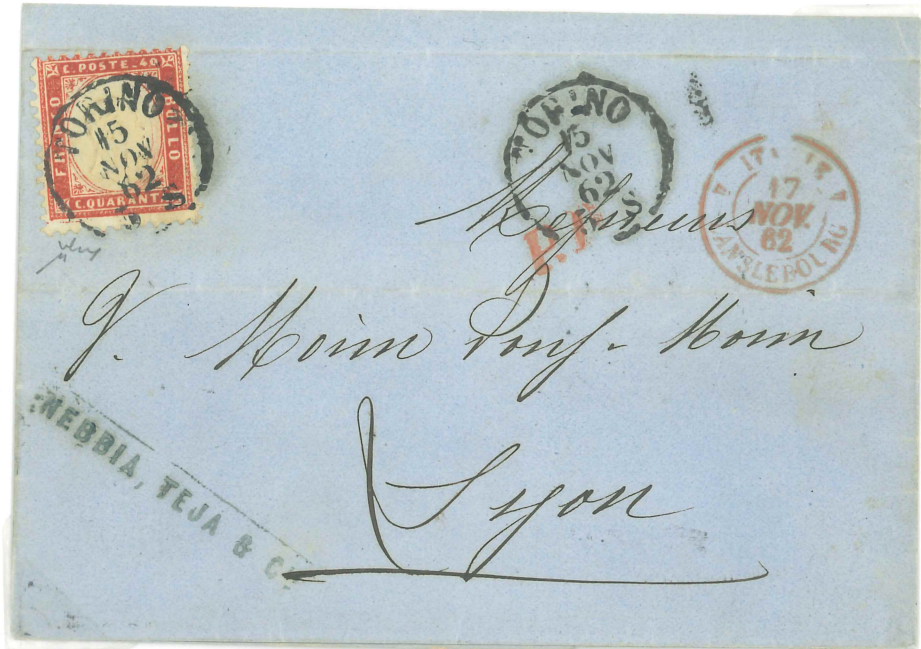 C. POSTE. 40
FRANCO
BOLLO
C. QUARANTA
TORINO
15
NOV
62
TORINO
15
NOV
62
S
P.D.
ITALIE
17
NOV.
62
LANSLEBOURG
Messieurs
J. Morin Morin
Lyon
NEBBIA, TEJA & C.